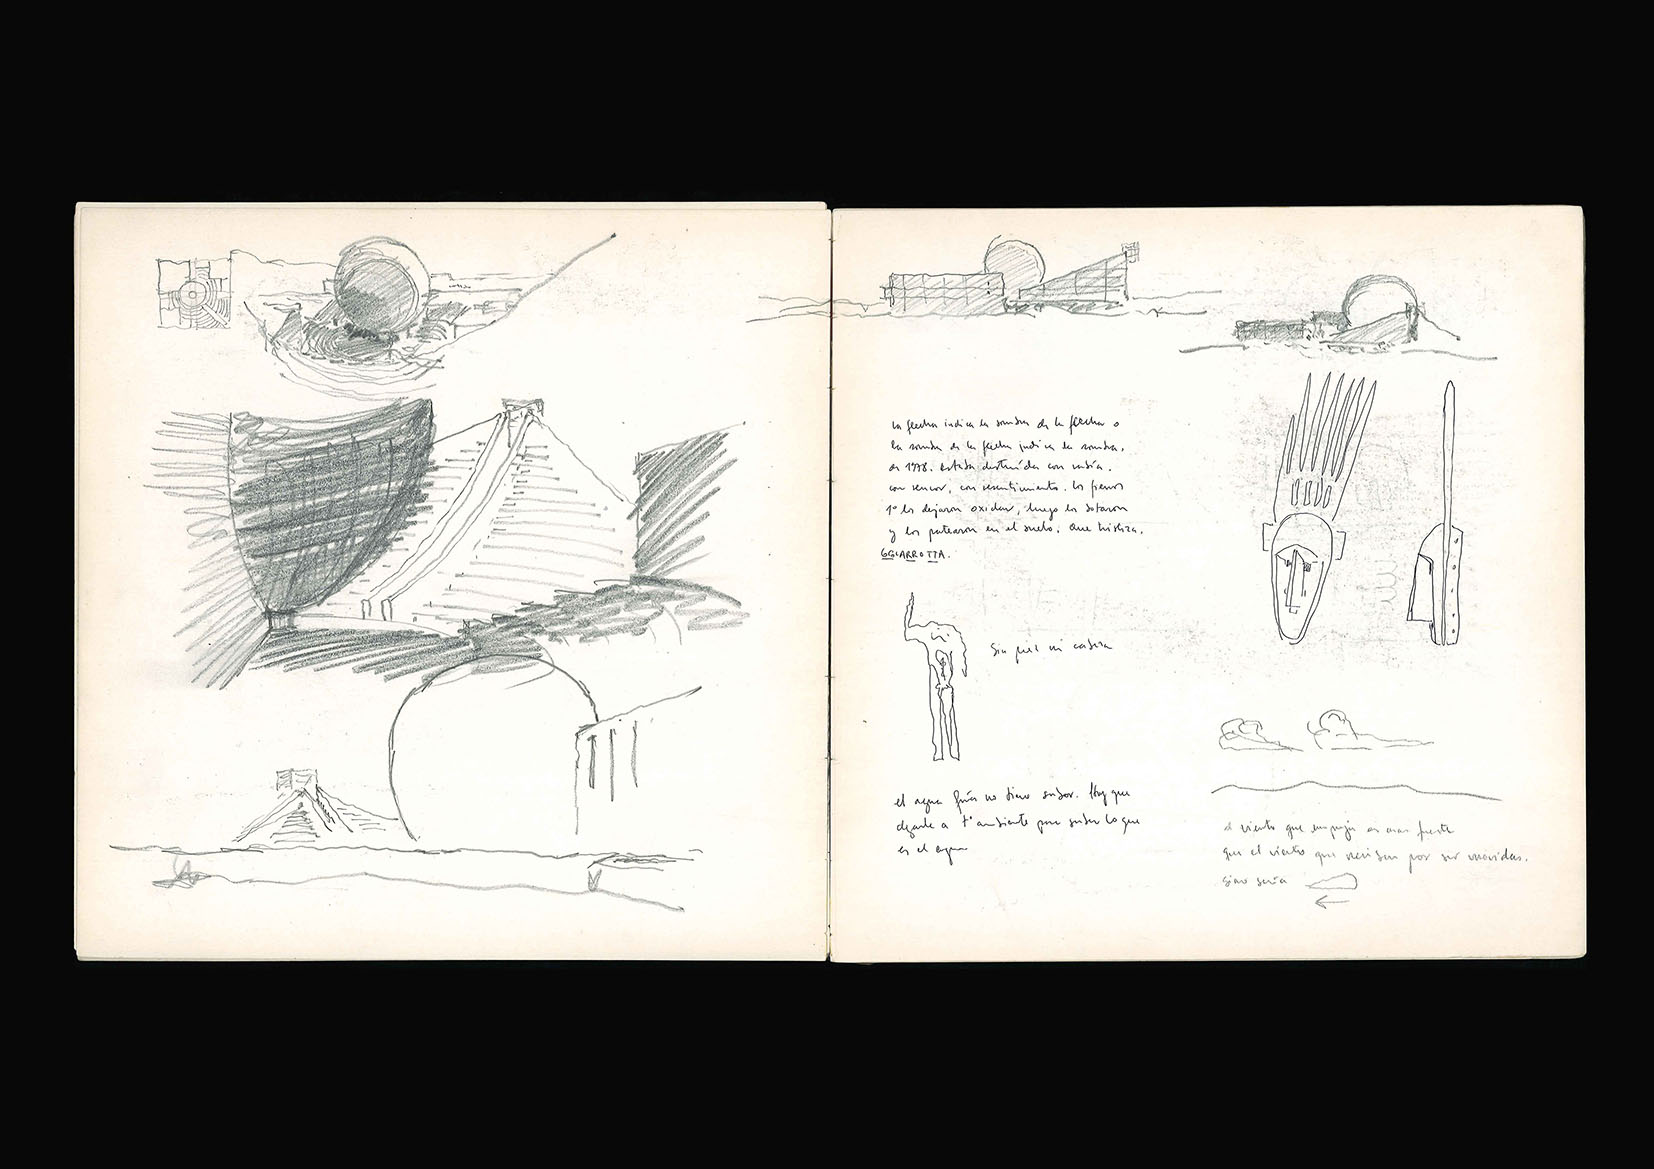 la flecha indica la sombra de la flecha o
la sombra de la flecha indica la sombra.
en 1978. estaba destruida con rabia.
con rencor, con resentimiento. los
1º los dejaron oxidar, luego los
y los patearon en el suelo. que tristeza.
GGIARROTTA.
Sin piel ni cabeza
el agua fría no tiene sabor. Hay que
dejarla a tº ambiente para saber lo que
es el agua
el viento que empuja es mas fuerte
que el viento que por ser movidas.
sino sería